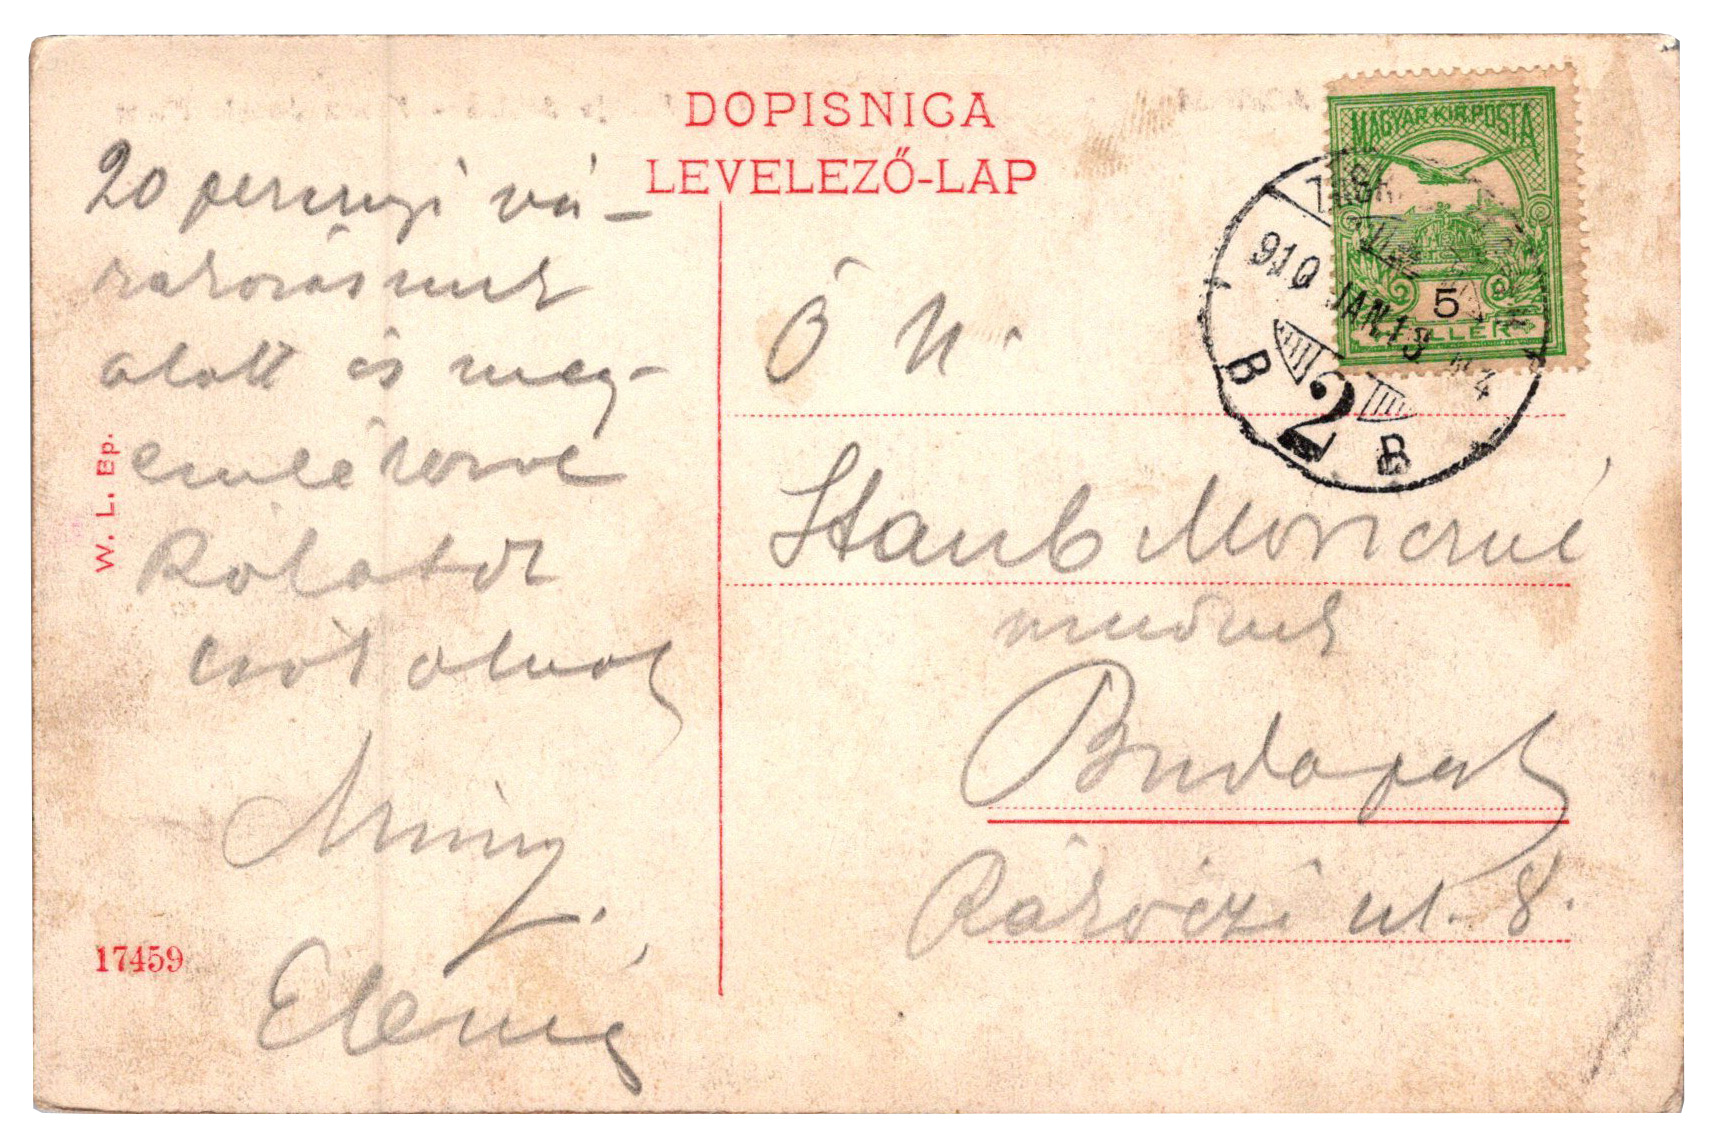 DOPISNICA
LEVELEZŐ-LAP
MAGYAR KIR. POSTA
5
FILLÉR
ZÁGR
910 JAN. 13
B 2 B
20 perenyi vá-
rakozásunk
alatt és meg-
emlékezve
Rólatok
csókolnak
W. L. Bp.
17459
Ő N.
Staub Móriczné
Budapest
Rákóczi ut. 8.